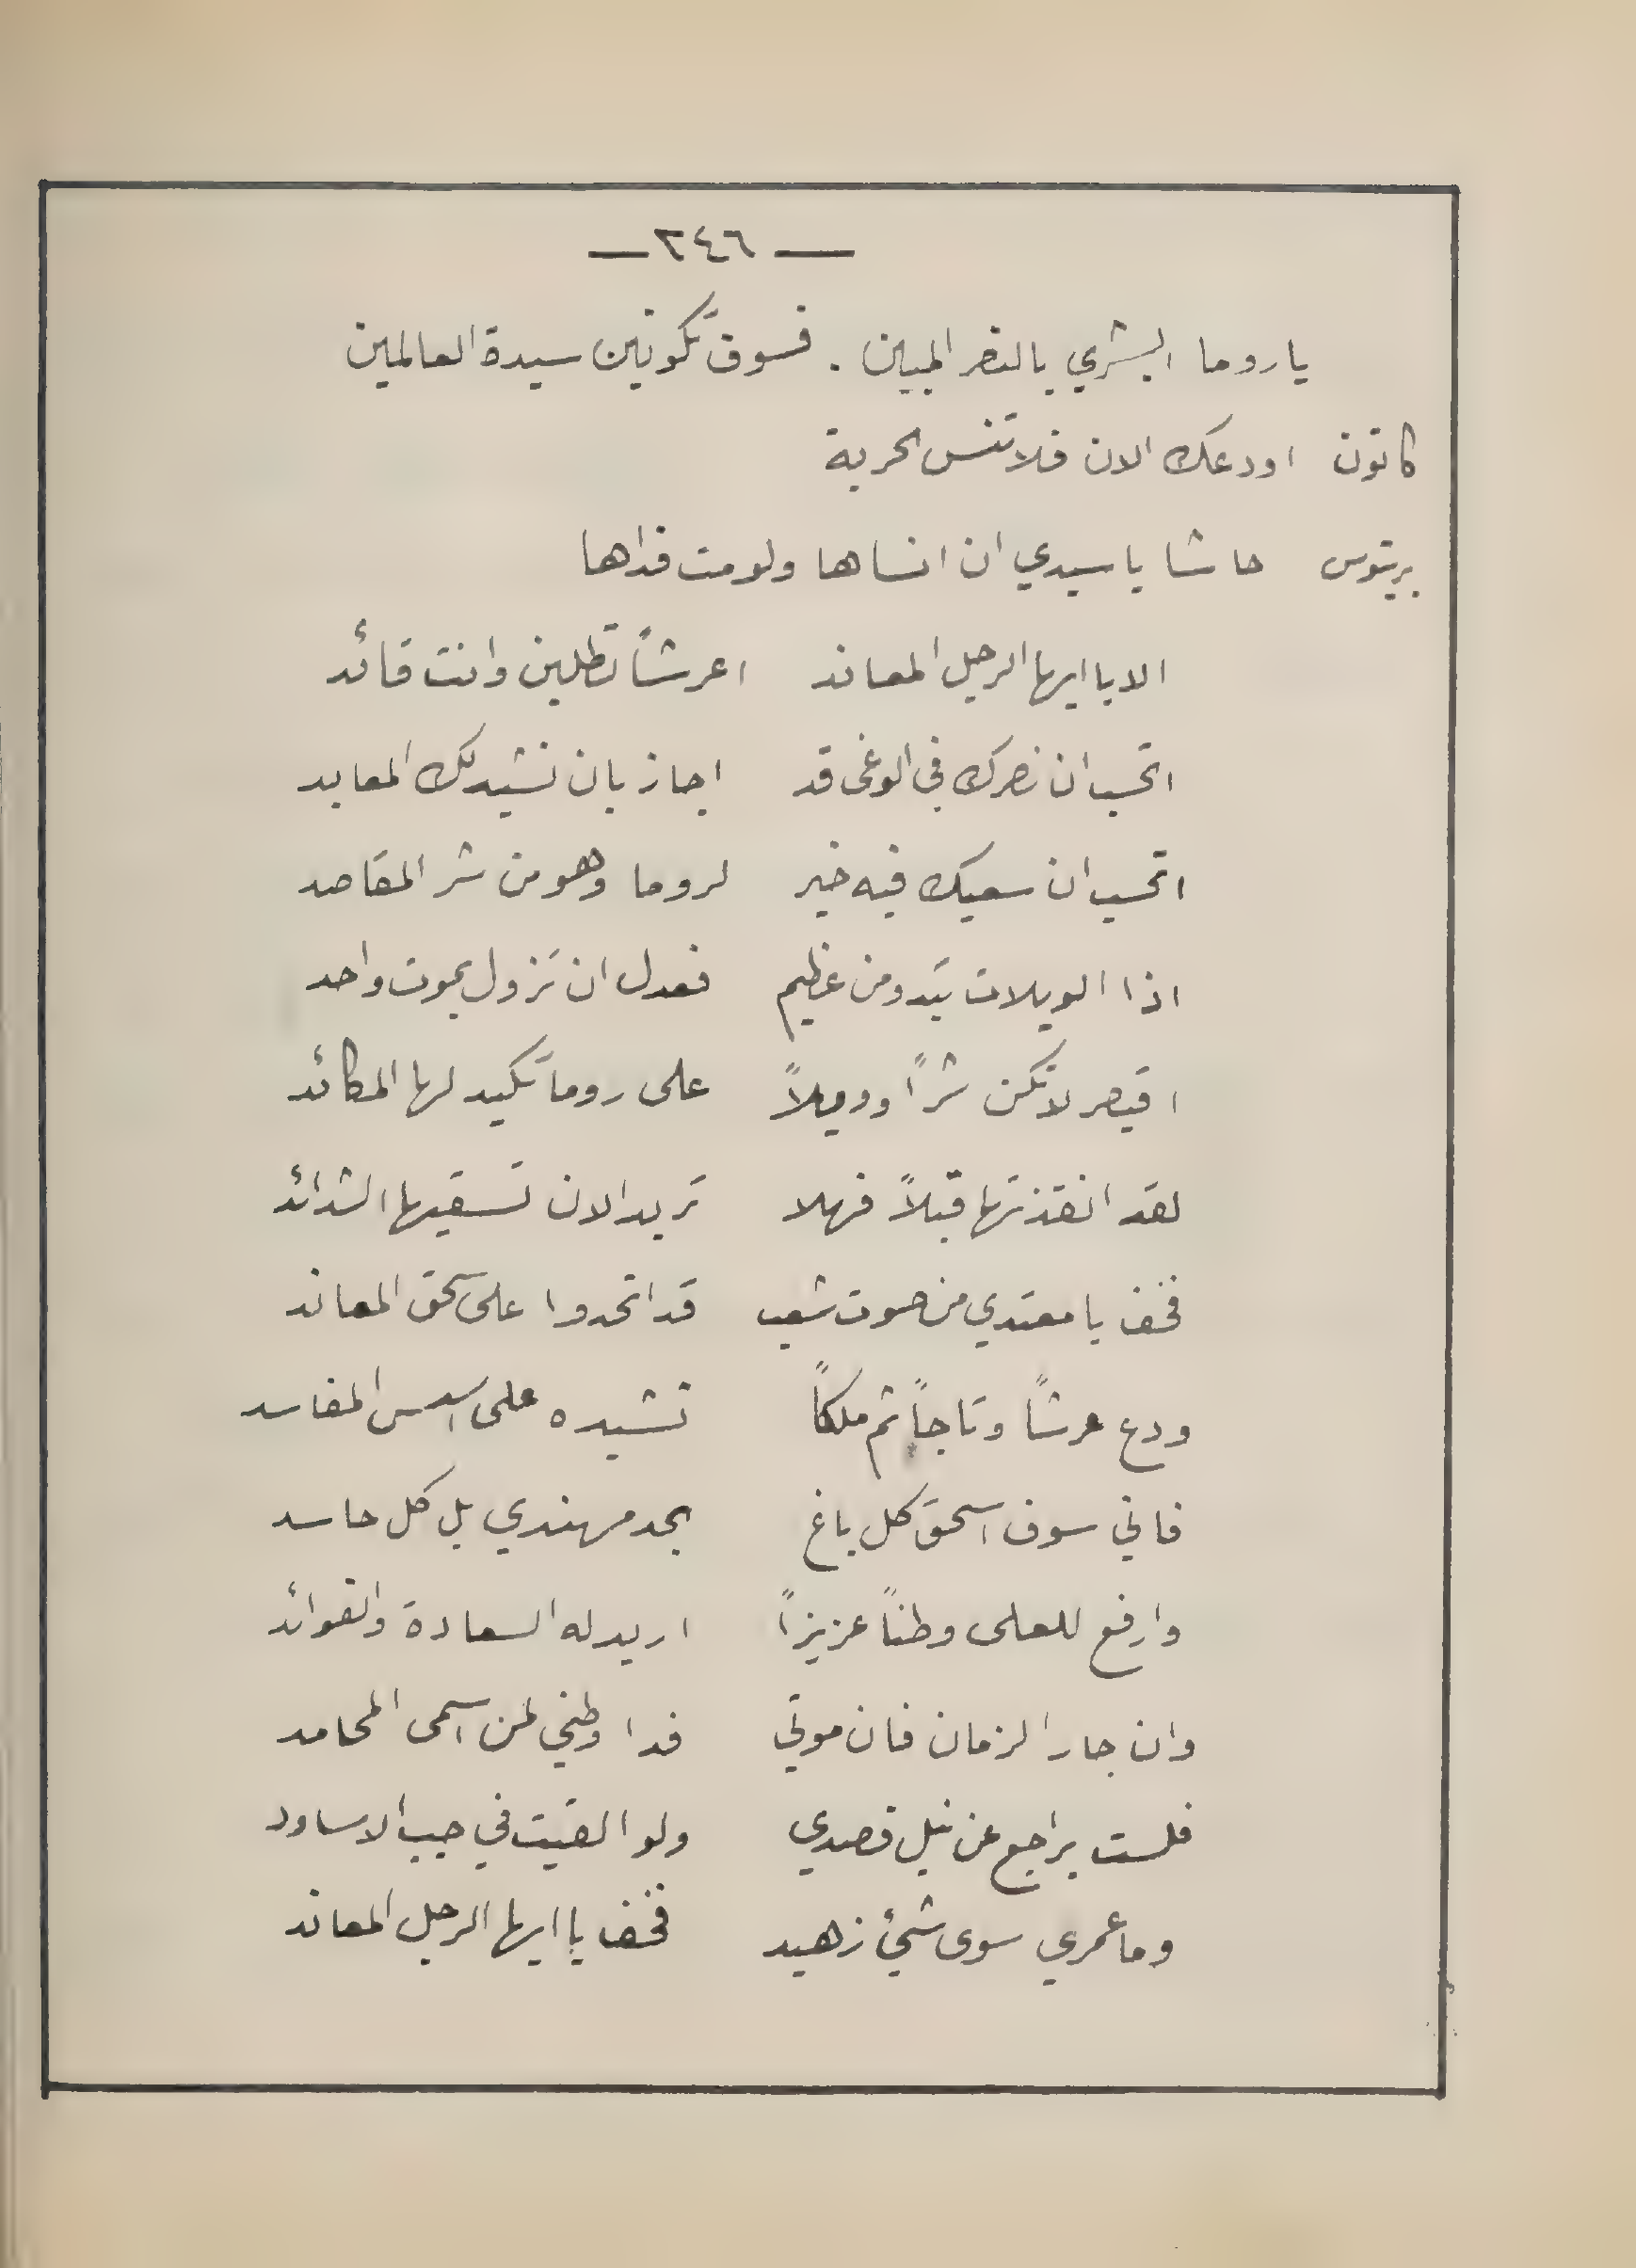 — ٢٤٦ —
ياروما ابشري بالنصر المبين . فسوف تكونين سيدة العالمين
كاتون اودعك الان فلا تنس الحرية
بريتوس حاشا يا سيدي ان انساها ولو مت فداها
الا يا ايها الرجل المعاند اعرشاً تطلبن وانت قائد
اتحسب ان نصرك في الوغى قد اجاز بان نشيد لك المعابد
اتحسب ان سعيك فيه خير لروما وهو من شر المقاصد
اذا الويلات تبدو من عظيم فعدل ان تزول بموت واحد
اقيصر لا تكن شراً وويلاً على روما تكيد لها المكائد
لقد انقذتها قبلاً فهلا تريد الان تسقيها الشدائد
فخف يا معتدي من صوت شعب قد اتحدوا على سحق المعاند
ودع عرشاً وتاجاً ثم ملكاً تشيده على اسس المفاسد
فاني سوف اسحق كل باغ بحد مهندي بل كل حاسد
وارفع للعلى وطناً عزيزاً اريد له السعادة والفوائد
وان جار الزمان فان موتي فدا وطني لمن اسمى المحامد
فلست براجع عن نيل قصدي ولو القيت في جب الاساود
وما عمري سوى شيئ زهيد فخف يا ايها الرجل المعاند